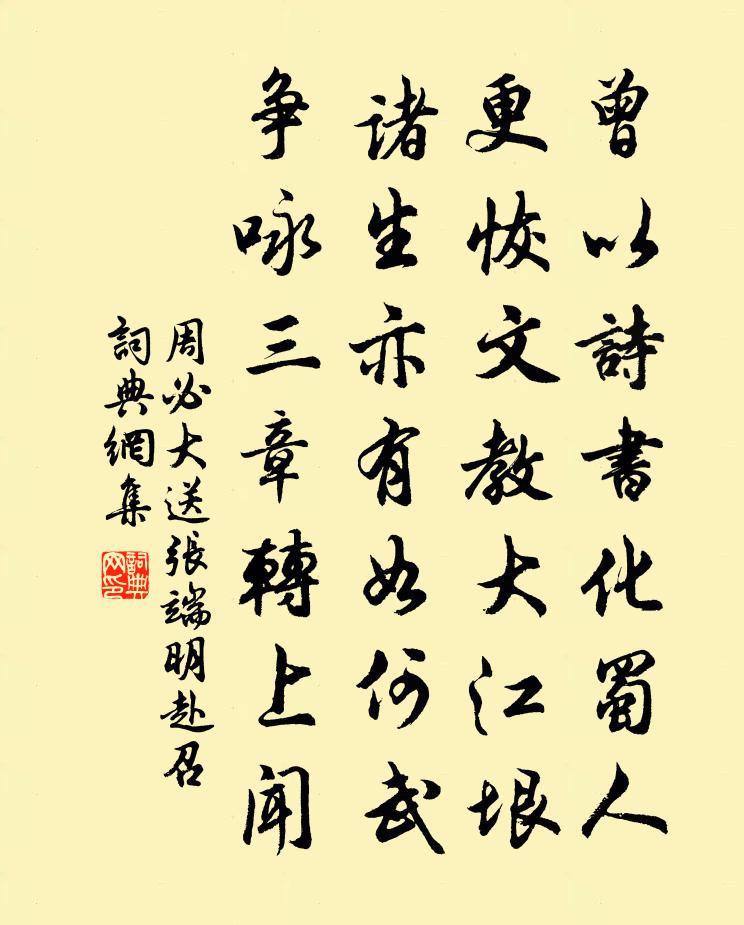 曾以詩書化蜀人
更恢文教大江垠
诸生亦有如何武
争咏三章轉上闻
周必大送張端明赴召
詞典網集
詞典网印